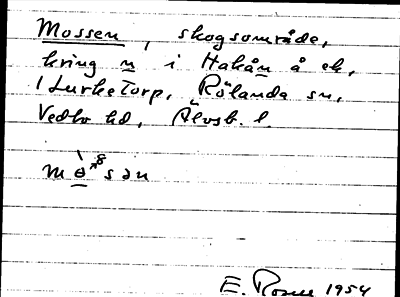 Mossen, skogsområde,
kring n i Hakån å ek,
1 Lurketorp, Rölanda sn,
Vedbo hd, Älvsb. l.
E. Rosell 1954